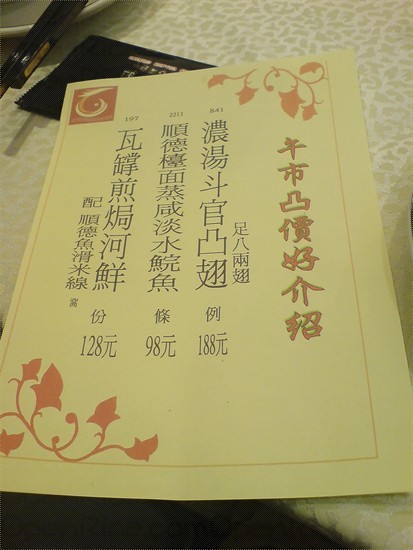 午市凸價好介紹
841
濃湯斗官凸翅
足八兩翅
例
188元
2211
順德檯面蒸咸淡水鯇魚
條
98元
197
瓦罉煎焗河鮮
配 順德魚滑米線
窩
份
128元
OpenRice.com